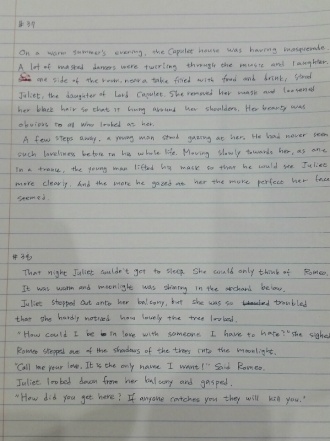 On a warm summer's evening, the Capulet house was having masquerade.
A lot of masked dancers were twirling through the music and laughter.
one side of the room, near a table filled with food and drink, stood
Juliet, the daughter of Lord Capulet. She removed her mask and loosened
her black hair so that it hung around her shoulders. Her beauty was
obvious to all who looked at her.
A few steps away, a young man stood gazing at her. He had never seen
such loveliness before in his whole life. Moving slowly towards her, as one
in a trance, the young man lifted his mask so that he would see Juliet
more clearly. And the more he gazed at her the more perfect her face
seemed.
That night Juliet couldn't get to sleep. She could only think of Romeo.
It was warm and moonlight was shining in the orchard below.
Juliet stepped out onto her balcony, but she was so troubled
that she hardly noticed how lovely the tree looked.
"How could I be in love with someone I have to hate?" she sighed
Romeo stepped out of the shadows of the trees into the moonlight.
"Call me your love. It is the only name I want!" Said Romeo.
Juliet looked down from her balcony and gasped.
"How did you get here? If anyone catches you they will kill you."